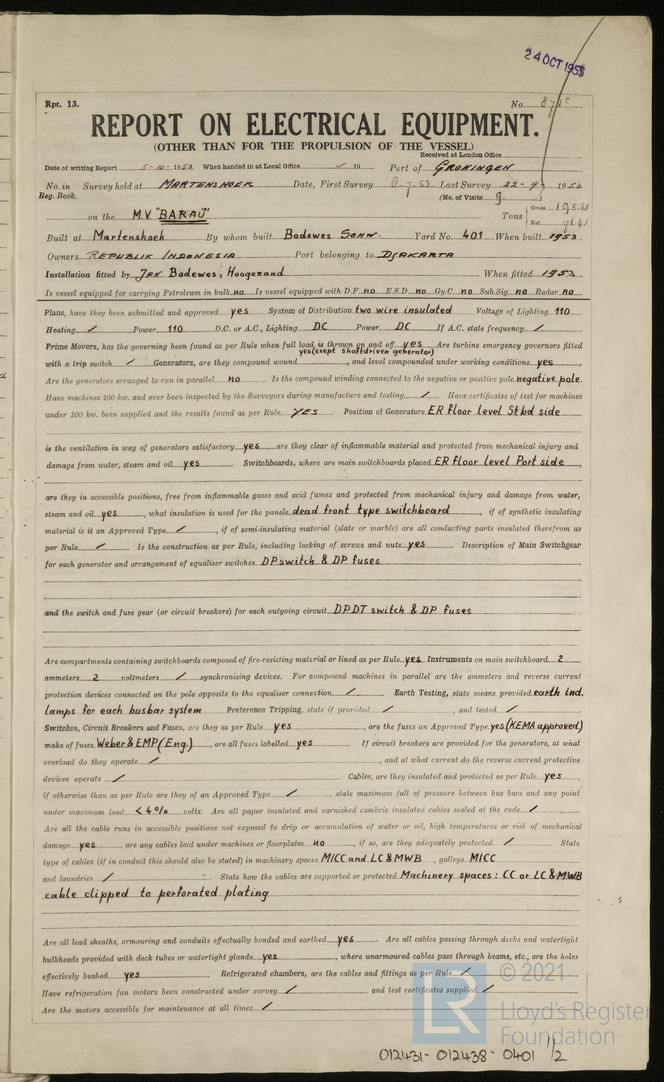 24 OCT 1953
Rpt. 13. No.
REPORT ON ELECTRICAL EQUIPMENT.
(OTHER THAN FOR THE PROPULSION OF THE VESSEL)
Received at London Office
Date of writing Report 5-10-1953 When handed in at Local Office / 19 Port of GRONINGEN
No. in Survey held at MARTENSHOEK Date, First Survey 8.7.53 Last Survey 22-9 1953
Reg. Book. (No. of Visits 9.
on the M.V. "BARAU" Tons { Gross 195.15
Net
Built at Martenshoek By whom built Bodewes Schw. Yard No. 401 When built 1953
Owners REPUBLIK INDONESIA Port belonging to DJAKARTA
Installation fitted by JAN Bodewes, Hoogezand When fitted 1953
Is vessel equipped for carrying Petroleum in bulk no Is vessel equipped with D.F. no E.S.D. no Gy.C. no Sub.Sig. no Radar no
Plans, have they been submitted and approved yes System of Distribution two wire insulated Voltage of Lighting 110
Heating / Power 110 D.C. or A.C., Lighting DC Power DC If A.C. state frequency /
Prime Movers, has the governing been found as per Rule when full load is thrown on and off yes Are turbine emergency governors fitted
yes (exept shaftdriven generator)
with a trip switch / Generators, are they compound wound , and level compounded under working conditions yes ,
Are the generators arranged to run in parallel no Is the compound winding connected to the negative or positive pole negative pole
Have machines 100 kw. and over been inspected by the Surveyors during manufacture and testing / Have certificates of test for machines
under 100 kw. been supplied and the results found as per Rule YES Position of Generators ER floor level Stbd side
is the ventilation in way of generators satisfactory yes are they clear of inflammable material and protected from mechanical injury and
damage from water, steam and oil yes Switchboards, where are main switchboards placed ER floor level Port side ,
are they in accessible positions, free from inflammable gases and acid fumes and protected from mechanical injury and damage from water,
steam and oil yes , what insulation is used for the panels dead front type switchboard , if of synthetic insulating
material is it an Approved Type / , if of semi-insulating material (slate or marble) are all conducting parts insulated therefrom as
per Rule / Is the construction as per Rule, including locking of screws and nuts yes . Description of Main Switchgear
for each generator and arrangement of equaliser switches DP switch & DP fuses
and the switch and fuse gear (or circuit breakers) for each outgoing circuit DPDT switch & DP fuses
Are compartments containing switchboards composed of fire-resisting material or lined as per Rule yes Instruments on main switchboard 2
ammeters 2 voltmeters / synchronising devices. For compound machines in parallel are the ammeters and reverse current
protection devices connected on the pole opposite to the equaliser connection / Earth Testing, state means provided earth ind.
lamps for each busbar system Preference Tripping, state if provided / , and tested /
Switches, Circuit Breakers and Fuses, are they as per Rule yes , are the fuses an Approved Type yes (KEMA approved)
make of fuses Weber & EMP (Eng.) , are all fuses labelled yes If circuit breakers are provided for the generators, at what
overload do they operate / , and at what current do the reverse current protective
devices operate / Cables, are they insulated and protected as per Rule yes ,
if otherwise than as per Rule are they of an Approved Type / , state maximum fall of pressure between bus bars and any point
under maximum load <4% volts. Are all paper insulated and varnished cambric insulated cables sealed at the ends /
Are all the cable runs in accessible positions not exposed to drip or accumulation of water or oil, high temperatures or risk of mechanical
damage yes , are any cables laid under machines or floorplates no , if so, are they adequately protected / State
type of cables (if in conduit this should also be stated) in machinery spaces MICC and LC & MWB , galleys MICC
and laundries / State how the cables are supported or protected Machinery spaces : CC or LC & MWB
cable clipped to perforated plating
Are all lead sheaths, armouring and conduits effectually bonded and earthed yes Are all cables passing through decks and watertight
bulkheads provided with deck tubes or watertight glands yes , where unarmoured cables pass through beams, etc., are the holes
effectively bushed yes Refrigerated chambers, are the cables and fittings as per Rule /
Have refrigeration fan motors been constructed under survey / and test certificates supplied /
Are the motors accessible for maintenance at all times /
LR © 2021
Lloyd's Register
Foundation
012431- 012438- 0401 1/2